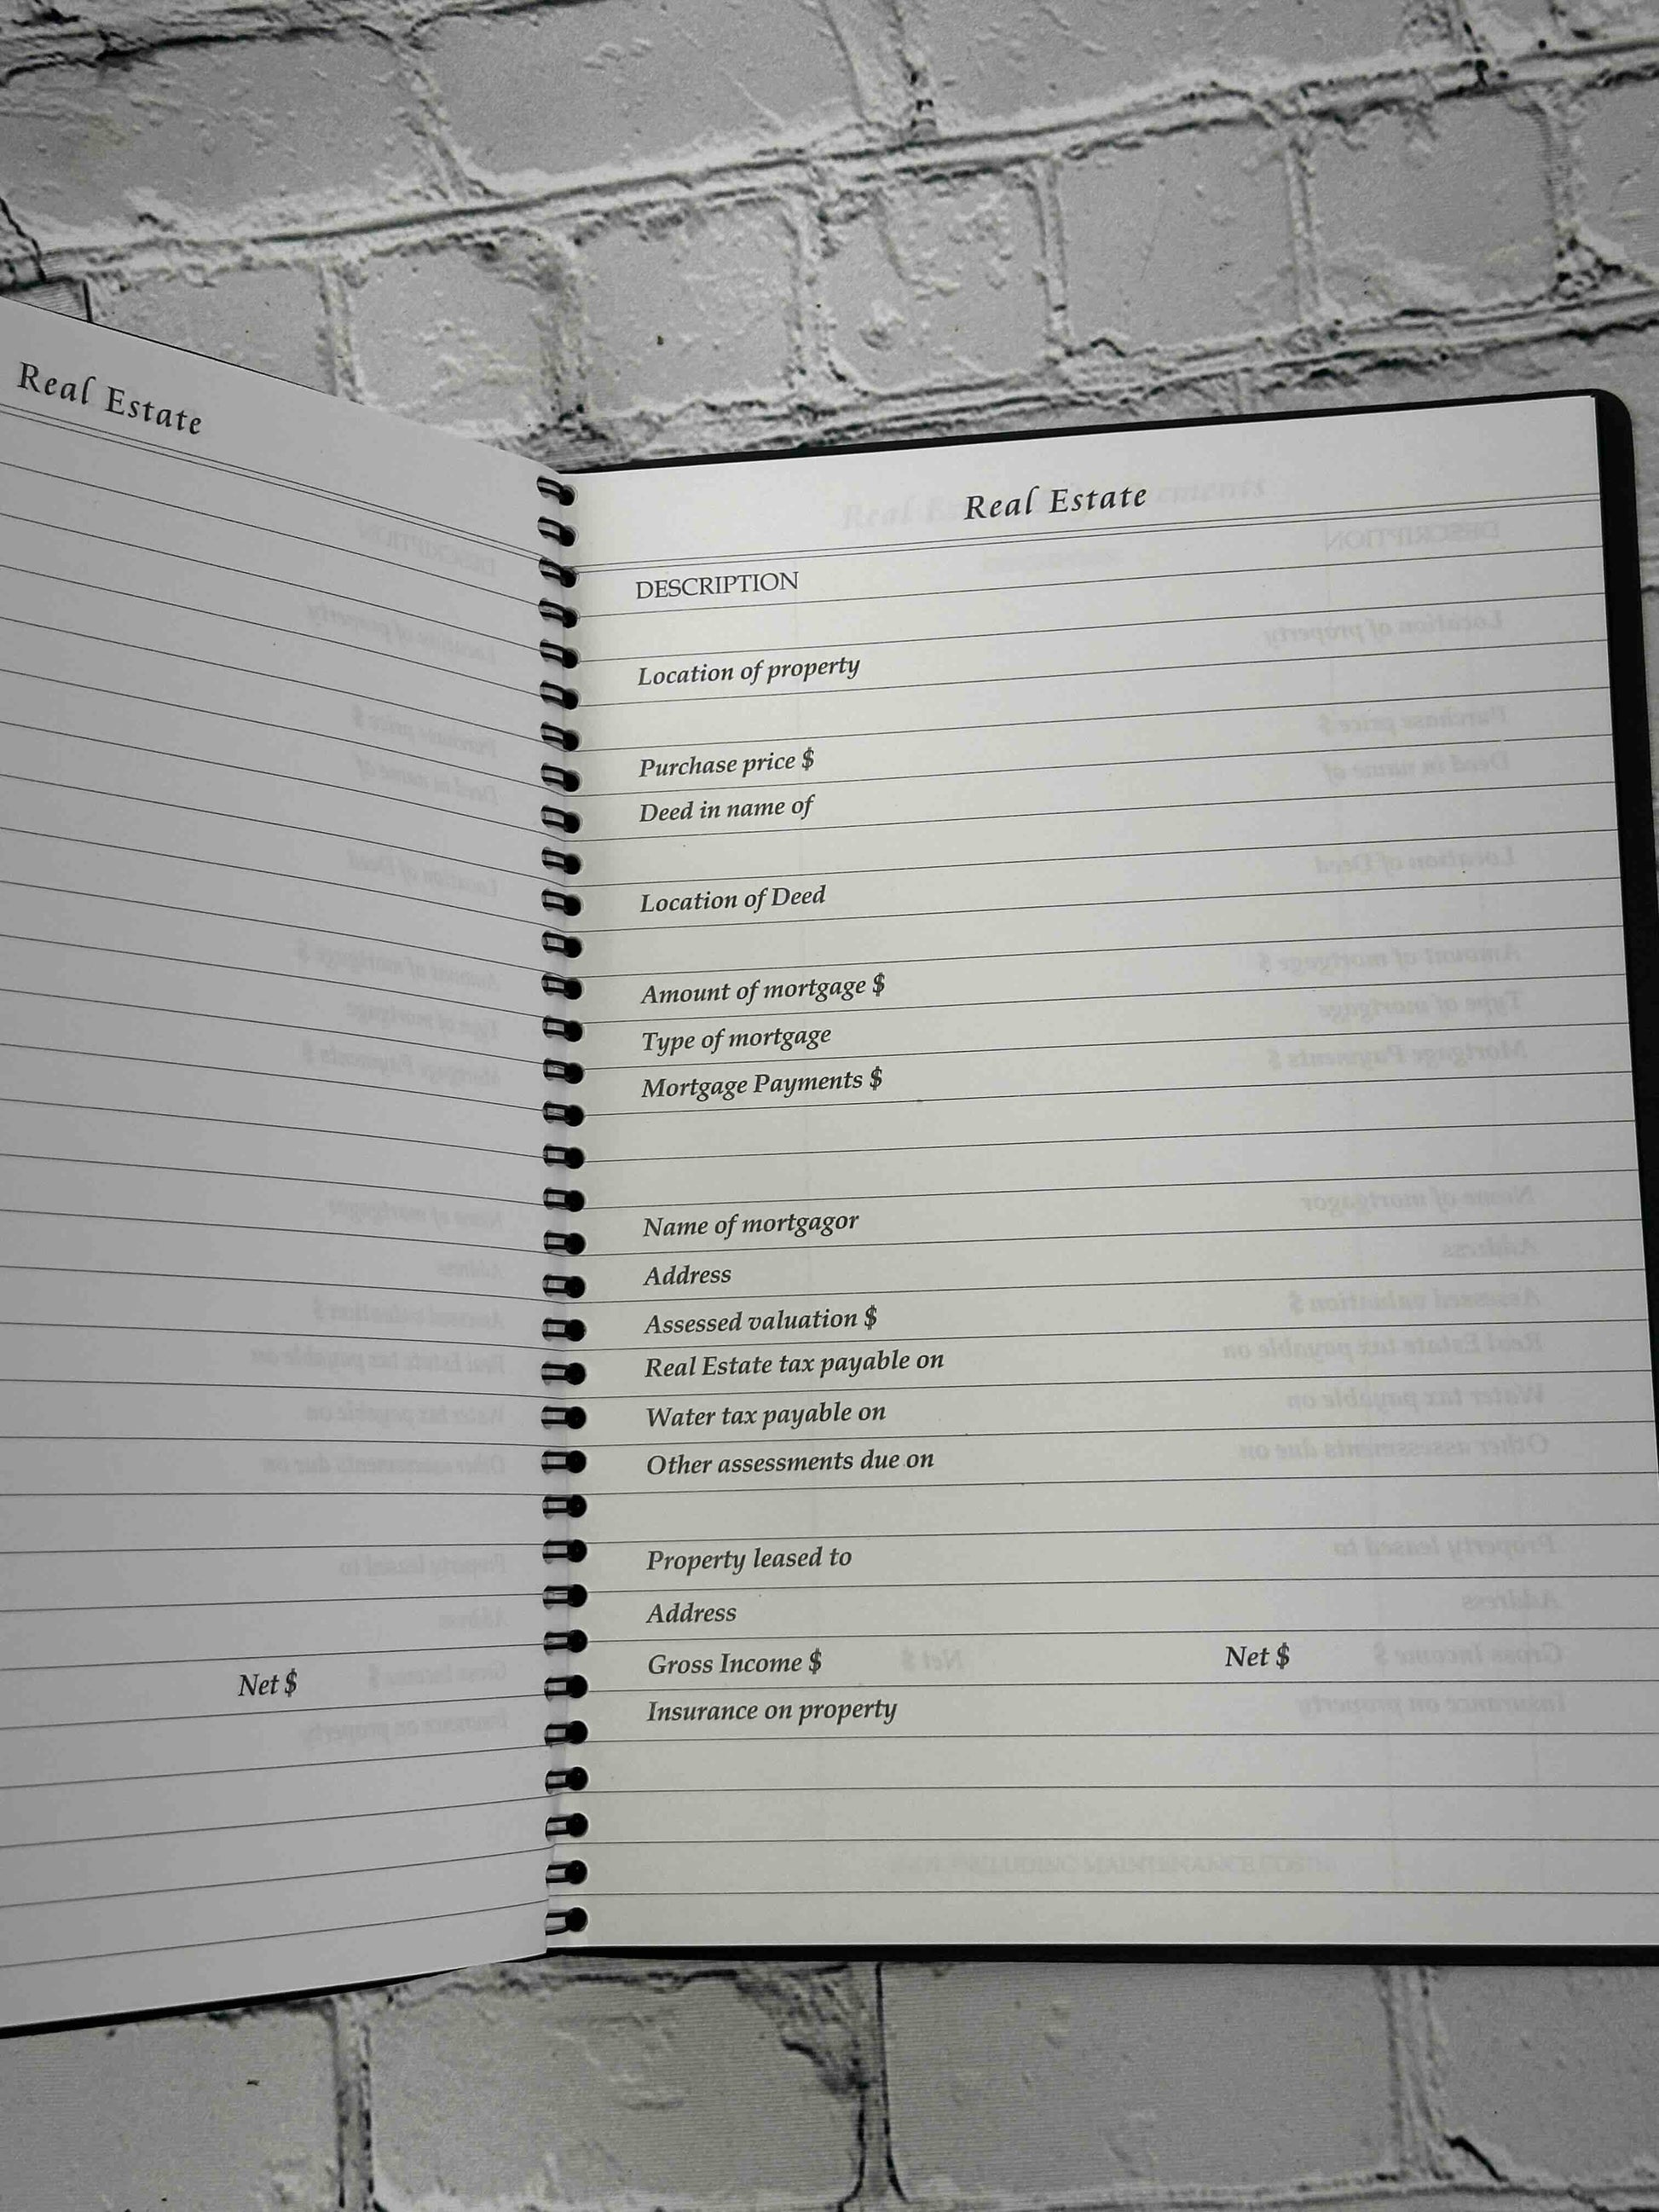 Real Estate
Net $
Real Estate
DESCRIPTION
Location of property
Purchase price $
Deed in name of
Location of Deed
Amount of mortgage $
Type of mortgage
Mortgage Payments $
Name of mortgagor
Address
Assessed valuation $
Real Estate tax payable on
Water tax payable on
Other assessments due on
Property leased to
Address
Gross Income $ Net $
Insurance on property